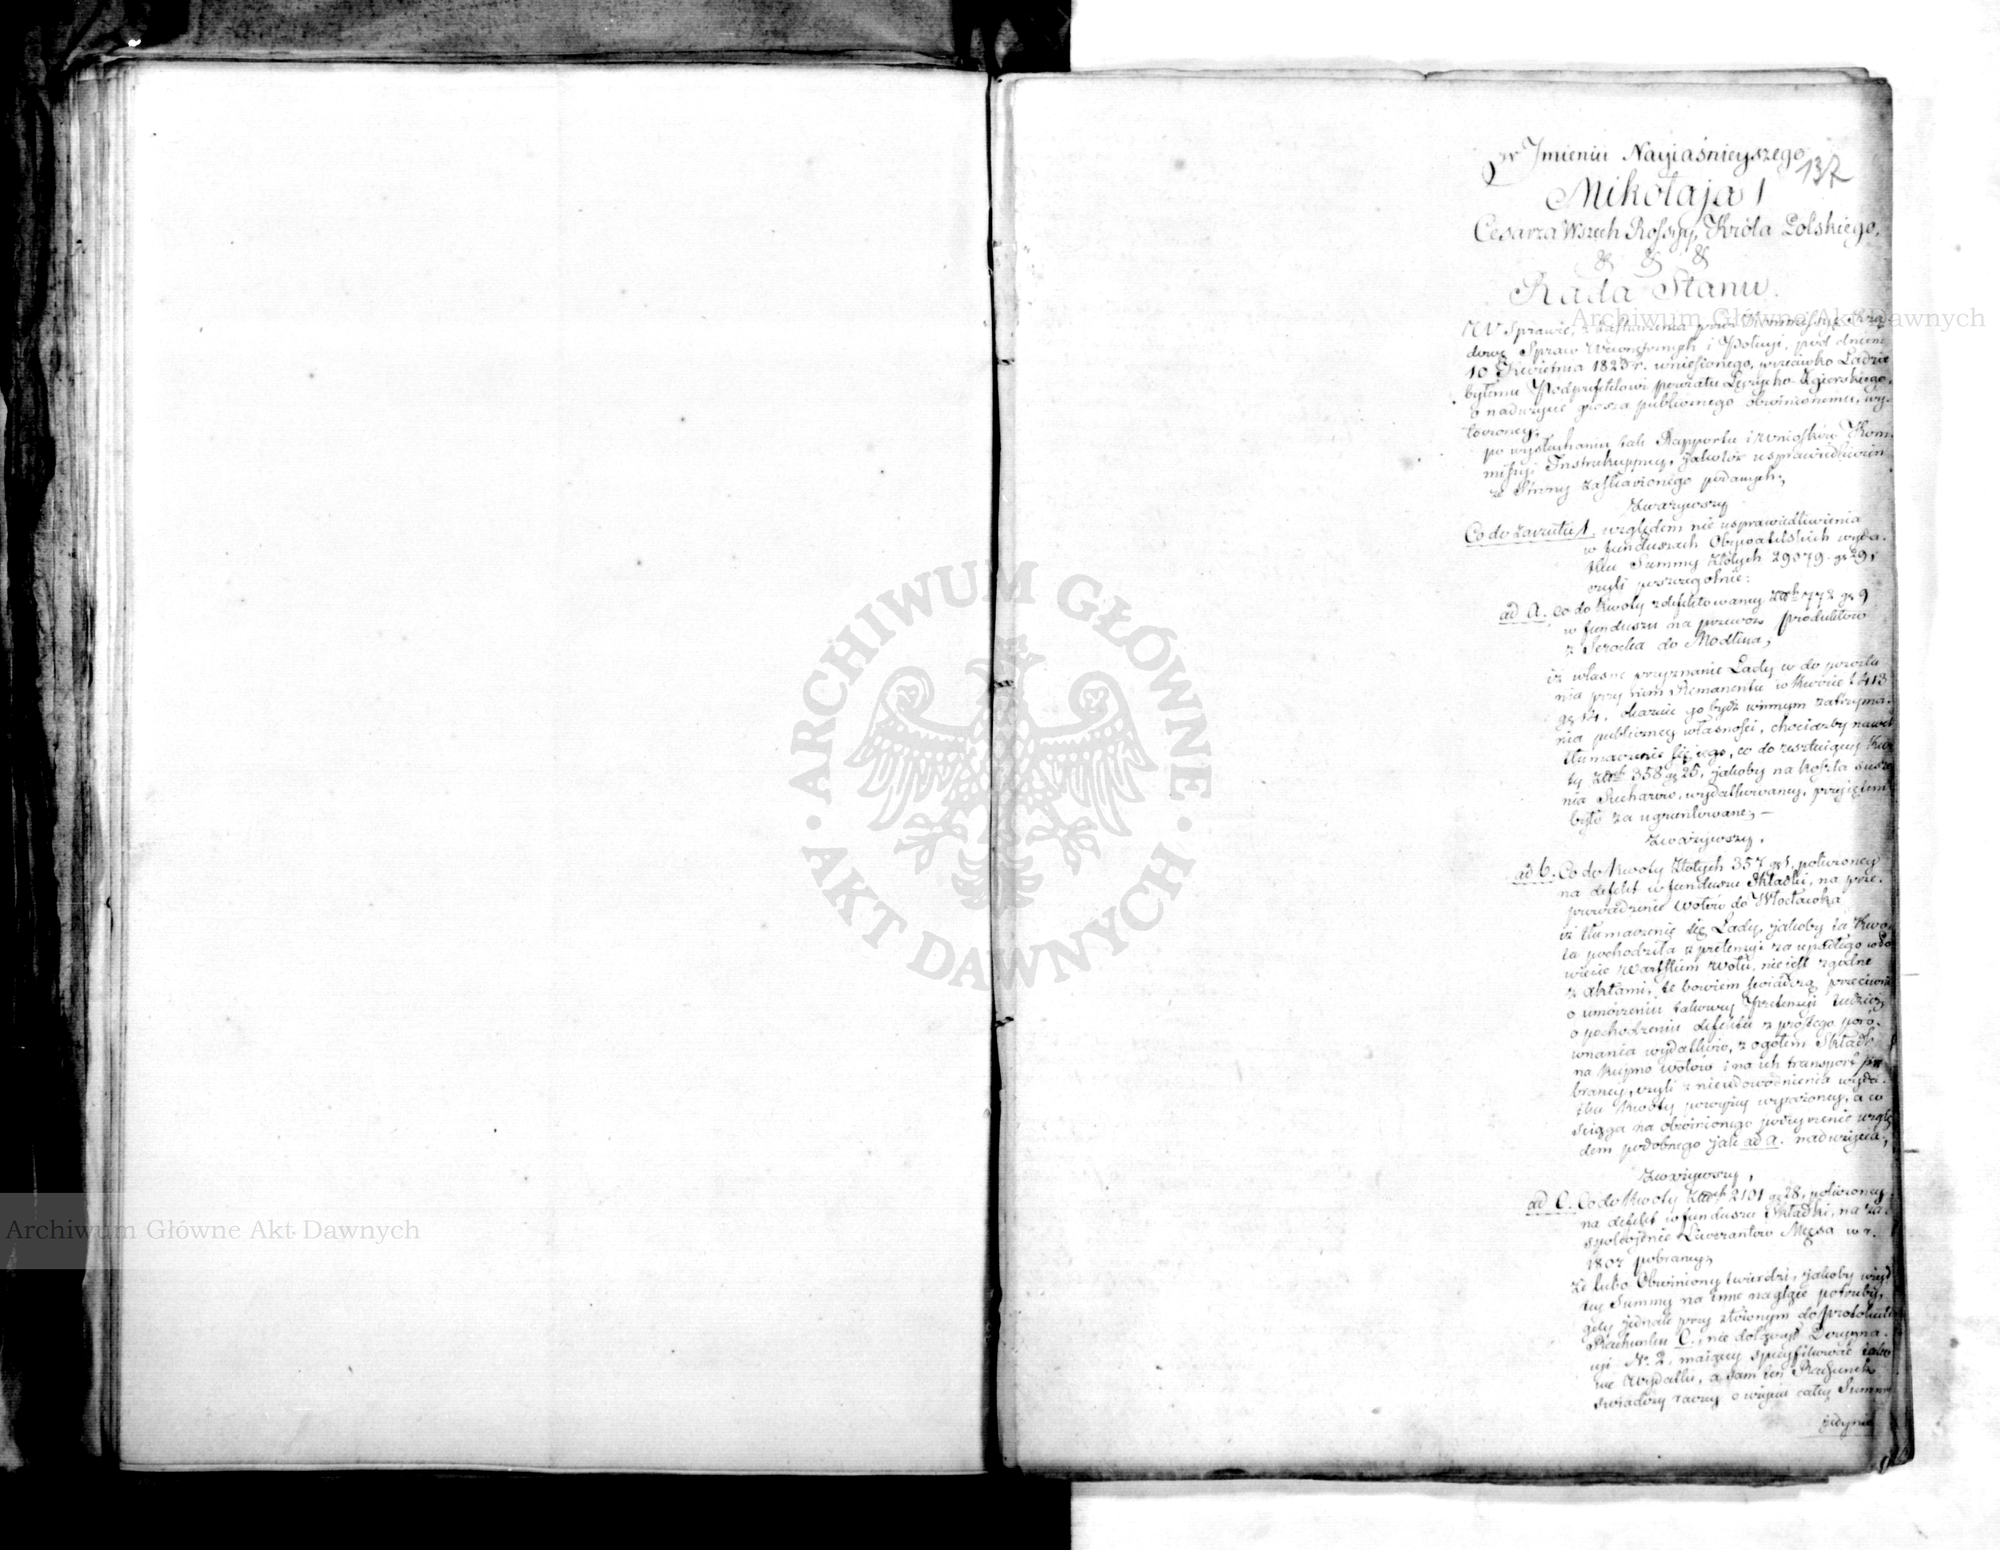 w Jmieniu Nayiaśnieyszego
137
Mikołaja I
Cesarza Wszech Rossyy, Króla Polskiego,
& & &
Rada Stanu.
W Sprawie, z zaskarżenia przez Kommissyę Rzą
dową Spraw Wewnętrznych i Policyi, pod dniem
10 Kwietnia 1823 r. wniesionego, przeciwko Ladzie
byłemu Podprefektowi powiatu Łęczycko-Zgierskiego,
o nadużycie grosza publicznego obwinionemu, wy-
toczoney;
po wysłuchaniu tak Rapportu i Wniosków Kom-
missyi Instrukcyyney, jakotéż usprawiedliwień
ze Strony zaskarżonego podanych;
Zważywszy
Co do Zarzutu 1, względem nie usprawiedliwienia
w funduszach Obywatelskich wyda-
tku Summy Złotych 29079 gr 29,
czyli szczególnie:
ad A. co do Kwoty zdefektowaney Złch 772 gr 9
w funduszu na przewóz produktów
z Serocka do Modlina;
iż własne przyznanie Lady co do pozosta
nia przy nim Remanentu w Kwocie 413
gr 14, okazuie go bydź winnym zatrzyma-
nia publiczney własności, chociażby nawet
tłumaczenie się iego, co do resztuiącey Kwo
ty Złch 358 gr 25, jakoby na koszta susze
nia Sucharów, wydatkowaney, przyiętem
było za ugruntowane; —
Zważywszy,
ad b. Co do Kwoty Złotych 357 gr 1, policzoney
na defekt w funduszu Składki, na prze-
prowadzenie wołów do Włocławka
iż tłumaczenie się Lady, jakoby ta Kwo-
ta pochodziła z pretensyi za upadłego
wołu, nie iest zgodne
z Aktami, te bowiem świadczą przeciwnie
o umorzeniu takowey Pretensyi tudzież
o pochodzeniu defektu z prostego poró-
wnania wydatków, z ogółem Składki
na kupno wołów i na ich transport po
braney, czyli z nieudowodnienia wyda-
tku Kwoty powyżey wyrażoney, a co
ściąga na obwinionego podeyrzenie wzglę
dem podobnego jak ad a. nadużycia;
Zważywszy,
ad C. Co do Kwoty Złch 2101 gr 28, policzoney
na defekt w funduszu Składki, na za-
spokojenie Liwerantów Mięsa w r.
1807 pobraney,
że lubo Obwiniony twierdzi, jakoby użył
tey Summy na inne nagłe potrzeby,
gdy jednak przy złożonym do protokułu
Rachunku C., nie dołączył Designa-
cyi Nr. 2, maiącey specyfikować tako
we wydatki, a sam ten Rachunek
świadczy raczy o użyciu całey Summy
jedynie
Archiwum Główne Akt Dawnych
Archiwum Główne Akt Dawnych
ARCHIWUM GŁÓWNE
AKT DAWNYCH